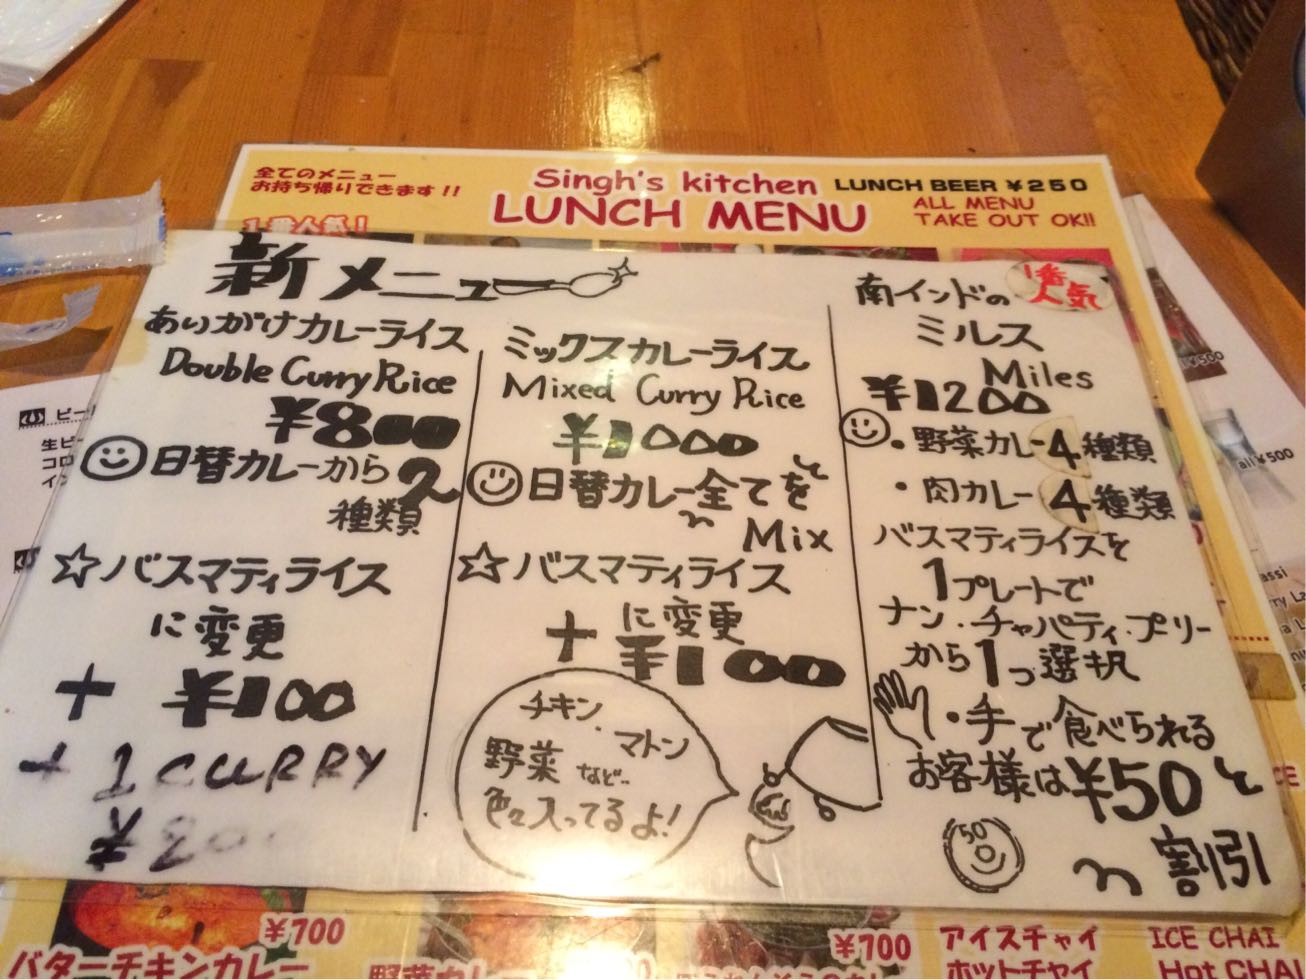 全てのメニュー
お持ち帰りできます!!
Singh's kitchen
LUNCH MENU
LUNCH BEER ¥250
ALL MENU
TAKE OUT OK!!
新メニュー
あいがけカレーライス
Double Curry Rice
¥800
日替カレーから2
種類
☆バスマティライス
に変更
+ ¥100
+ 1 CURRY
ミックスカレーライス
Mixed Curry Rice
¥1000
日替カレー全てを
Mix
☆バスマティライス
に変更
+ ¥100
チキン・
マトン
野菜 など..
色々入ってるよ!
1番
人気
南インドの
ミルス
Miles
¥1200
・野菜カレー4種類
・肉カレー4種類
バスマティライスを
1プレートで
ナン・チャパティ・プーリー
から1つ選択
・手で食べられる
お客様は¥50
割引
50
¥700
バターチキンカレー
¥700
アイスチャイ
ICE CHAI
ホットチャイ
Hot CHAI
¥500
all ¥500